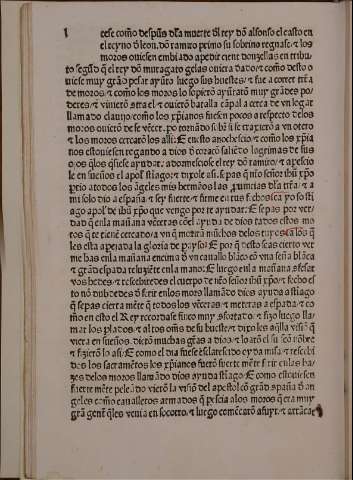 cese como despues dla muerte dl rey dõ alfonso el casto en
el reyno d leon. dõ ramiro primo su sobrino regnase. ⁊ los
moros oviesen embiado apedir cient donzellas en tribu
to segũd q̃ el rey dõ muragato gelas oviera dado ⁊ como desto o
viese muy grãd pesar ayũto luego sus huestes ⁊ fue a correr trr̃a
de moros ⁊ como los moros lo sopierõ ayũtarõ muy grãdes po
deres ⁊ vinierõ a el ⁊ ovierõ batalla cãpal acerca de vn logar
llamado clavijo como los xp̃ianos fuesen pocos a respecto delos
moros ovierõ de se vẽcer. po tornãdo se retraxierõ a vn otero
⁊ los moros cercarõ los alli. E en esto anochescio ⁊ como los xp̃ia
nos estoviesen rogando a dios d coraçõ saliẽdo logrimas de sus
ojos q̃los q̃siese ayudar. adormesciose el rey dõ ramiro ⁊ apescio
le en sueños el aposl sãtiago ⁊ dixole asi. sepas q̃ nr̃o señor ihũ xp̃o
prtio atodos los ãgeles mis hermãos las provincias dla trr̃a ⁊ a
mi solo dio a españa ⁊ sey fuerte ⁊ firme en tus fechos ca yo so sti
ago aposl de ihũ xp̃o que vengo por te ayudar. E sepas por ver
dad q̃ enla mañana vẽceras cõel ayuda de dios todos estos mo
ros q̃ te tienẽ cercado ⁊ vn q̃ moriran muchos delos tuyos ca los q̃
les esta aperada la gloria de payso. E por q̃ desto seas cierto ver
me has enla mañana encima d vn cavallo blãco cõ vna seña blãca
⁊ grãd espada reluziẽte enla mano. E luego enla mañana cõfesat
vos ⁊ rescebiredes el cuerpo de nr̃o señor ihũ xp̃o ⁊ fecho es
to nõ dubdedes d ferir enlos moros llamãdo dios ayuda a stiago
q̃ sepas cierta mẽte q̃ todos los vẽceras ⁊ meteras a espada ⁊ co
mo en esto el Rey recordase fincó muy esforçado ⁊ fizo luego lla
mar los plados ⁊ altos omẽs de su hueste ⁊ dixo les aq̃lla visiõ q̃
viera en sueños. dierõ muchas grãs a dios ⁊ loarõ el su sctõ nõbre
⁊ fizierõ lo asi. E como el dia fuese esclarescido oyda misa ⁊ rescebi
dos los sacramẽtos los xp̃ianos fuerõ fuerte mẽte ferir enlas ha
zes delos moros llamãdo dios ayuda stiago. E como estoviesen
fuerte mẽte peleãdo vierõ la visiõ del aposl cõ grãd cõpaña d an
geles como cavalleros armados q̃ pescia a los moros q̃ era muy
grã gente q̃les venia en socorro. ⁊ luego comẽçarõ a fuyr. ⁊ arrãcar